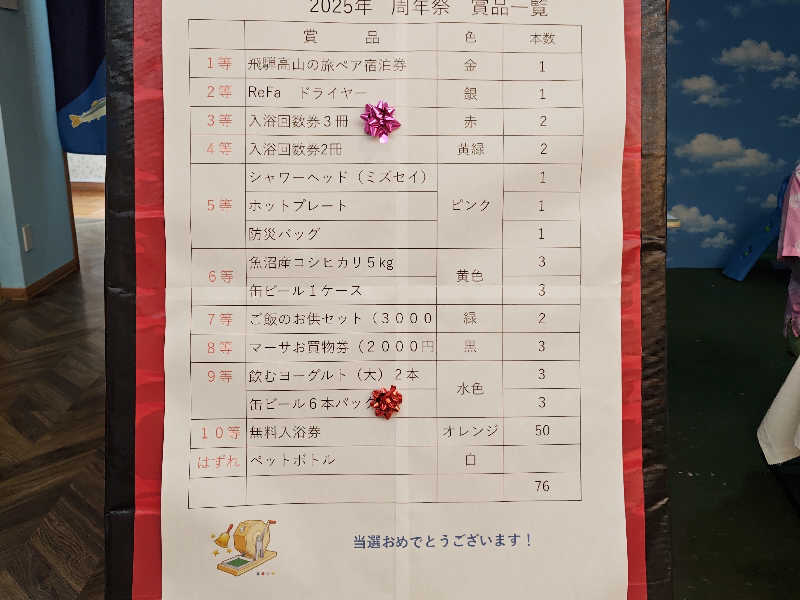 2025年 周年祭 賞品一覧
賞 品 色 本数
1等 飛騨高山の旅ペア宿泊券 金 1
2等 ReFa ドライヤー 銀 1
3等 入浴回数券3冊 赤 2
4等 入浴回数券2冊 黄緑 2
シャワーヘッド（ミズセイ） 1
5等 ホットプレート ピンク 1
防災バッグ 1
魚沼産コシヒカリ５kg 3
6等 黄色
缶ビール１ケース 3
7等 ご飯のお供セット（３０００ 緑 2
8等 マーサお買物券（２０００円 黒 3
9等 飲むヨーグルト（大）２本 3
水色
缶ビール６本パック 3
１０等 無料入浴券 オレンジ 50
はずれ ペットボトル 白
76
当選おめでとうございます！